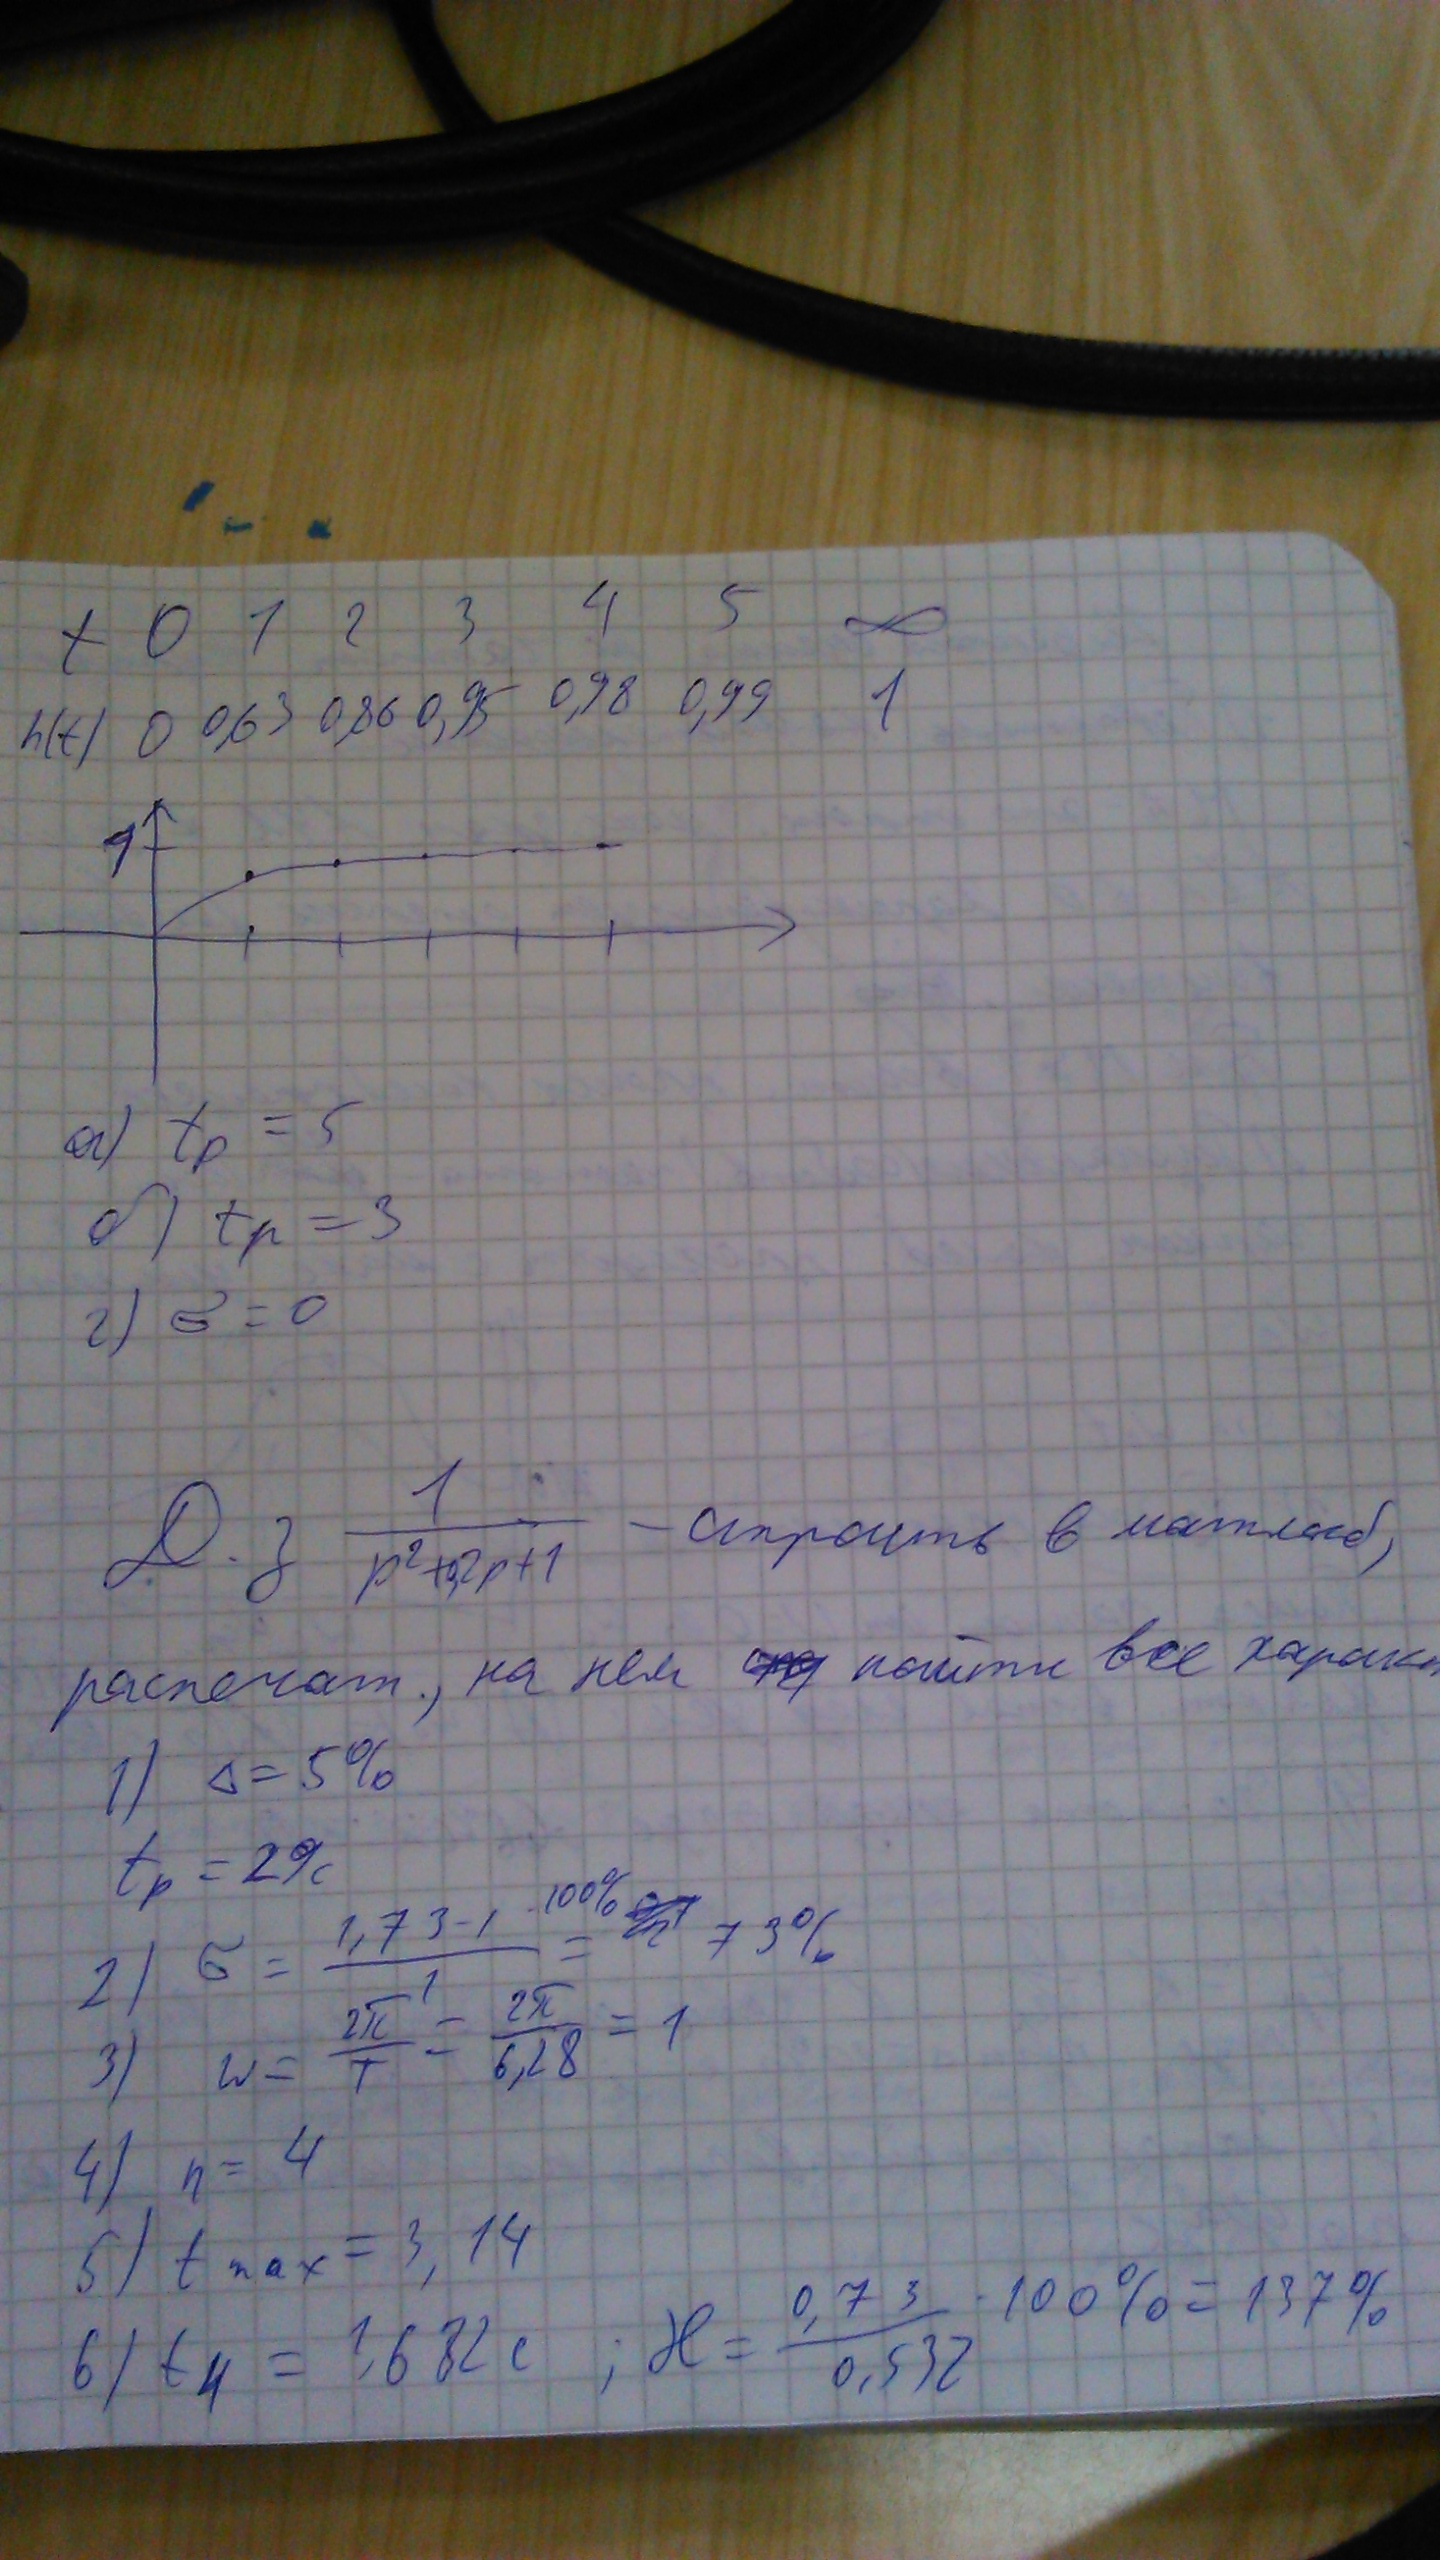 t 0 1 2 3 4 5 ∞
h(t) 0 0,63 0,86 0,95 0,98 0,99 1
1
а) tр = 5
б) tр = 3
г) σ = 0
Д.з 1/(p²+0,2p+1) – строить в матлаб,
распечат., на нем найти все характ
1) Δ = 5%
tр = 29с
2) σ = (1,73-1)/1 · 100% = 73%
3) w = 2π/T = 2π/6,28 = 1
4) n = 4
5) t max = 3,14
6) tн = 1,682 с ; ℋ = 0,73/0,532 · 100% = 137%